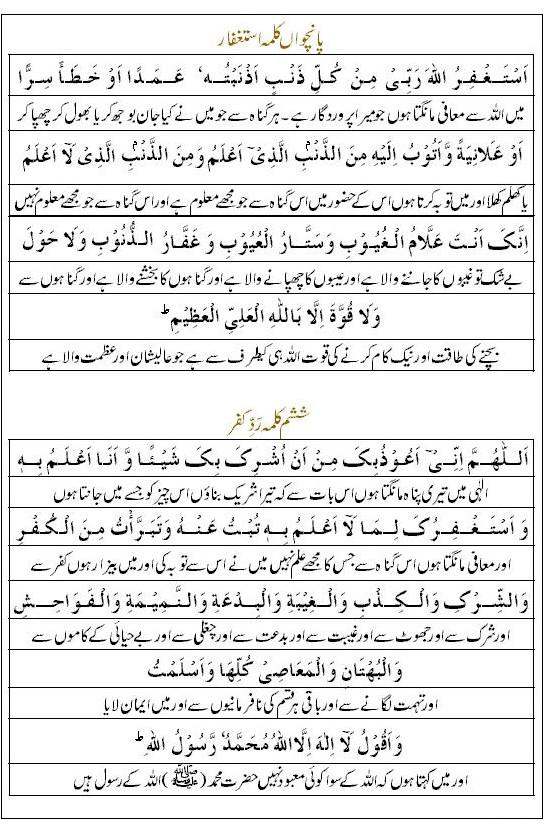 پانچواں کلمہ استغفار
اَسْتَغْفِرُ اللهَ رَبِّیْ مِنْ کُلِّ ذَنْۢبٍ اَذْنَبْتُه' عَمَدًا اَوْ خَطَأً سِرًّا
میں اللہ سے معافی مانگتا ہوں جو میرا پروردگار ہے۔ ہر گناہ سے جو میں نے کیا جان بوجھ کر یا بھول کر چھپا کر
اَوْ عَلَانِیَةً وَّاَتُوْبُ اِلَیْهِ مِنَ الذَّنْۢبِ الَّذِیْٓ اَعْلَمُ وَمِنَ الذَّنْۢبِ الَّذِیْ لَآ اَعْلَمُ
یا کھلم کھلا اور میں توبہ کرتا ہوں اس کے حضور میں اس گناہ سے جو مجھے معلوم ہے اور اس گناہ سے جو مجھے معلوم نہیں
اِنَّکَ اَنْتَ عَلَّامُ الْغُیُوْبِ وَسَتَّارُ الْعُیُوْبِ وَ غَفَّارُ الذُّنُوْبِ وَلَا حَوْلَ
بے شک تو غیبوں کا جاننے والا ہے اور عیبوں کا چھپانے والا ہے اور گناہوں کا بخشنے والا ہے اور گناہوں سے
وَلَا قُوَّةَ اِلَّا بِاللّٰهِ الْعَلِیِّ الْعَظِیْمِ ؕ
بچنے کی طاقت اور نیک کام کرنے کی قوت اللہ ہی کیطرف سے ہے جو عالیشان اور عظمت والا ہے
ششم کلمہ ردِّ کفر
اَللّٰهُمَّ اِنِّیْٓ اَعُوْذُبِکَ مِنْ اَنْ اُشْرِکَ بِکَ شَیْئًا وَّ اَنَا اَعْلَمُ بِهٖ
الٰہی میں تیری پناہ مانگتا ہوں اس بات سے کہ تیرا شریک بناؤں اس چیز کو جسے میں جانتا ہوں
وَ اَسْتَغْفِرُکَ لِمَا لَآ اَعْلَمُ بِهٖ تُبْتُ عَنْهُ وَتَبَرَّأْتُ مِنَ الْکُفْرِ
اور معافی مانگتا ہوں اس گناہ سے جس کا مجھے علم نہیں میں نے اس سے توبہ کی اور میں بیزار ہوں کفر سے
وَالشِّرْکِ وَالْکِذْبِ وَالْغِیْبَةِ وَالْبِدْعَةِ وَالنَّمِیْمَةِ وَالْفَوَاحِشِ
اور شرک سے اور جھوٹ سے اور غیبت سے اور بدعت سے اور چغلی سے اور بے حیائی کے کاموں سے
وَالْبُهْتَانِ وَالْمَعَاصِیْ کُلِّهَا وَاَسْلَمْتُ
اور تہمت لگانے سے اور باقی ہر قسم کی نافرمانیوں سے اور میں ایمان لایا
وَاَقُوْلُ لَآ اِلٰهَ اِلَّااللهُ مُحَمَّدٌ رَّسُوْلُ اللهِ ؕ
اور میں کہتا ہوں کہ اللہ کے سوا کوئی معبود نہیں حضرت محمد (ﷺ) اللہ کے رسول ہیں